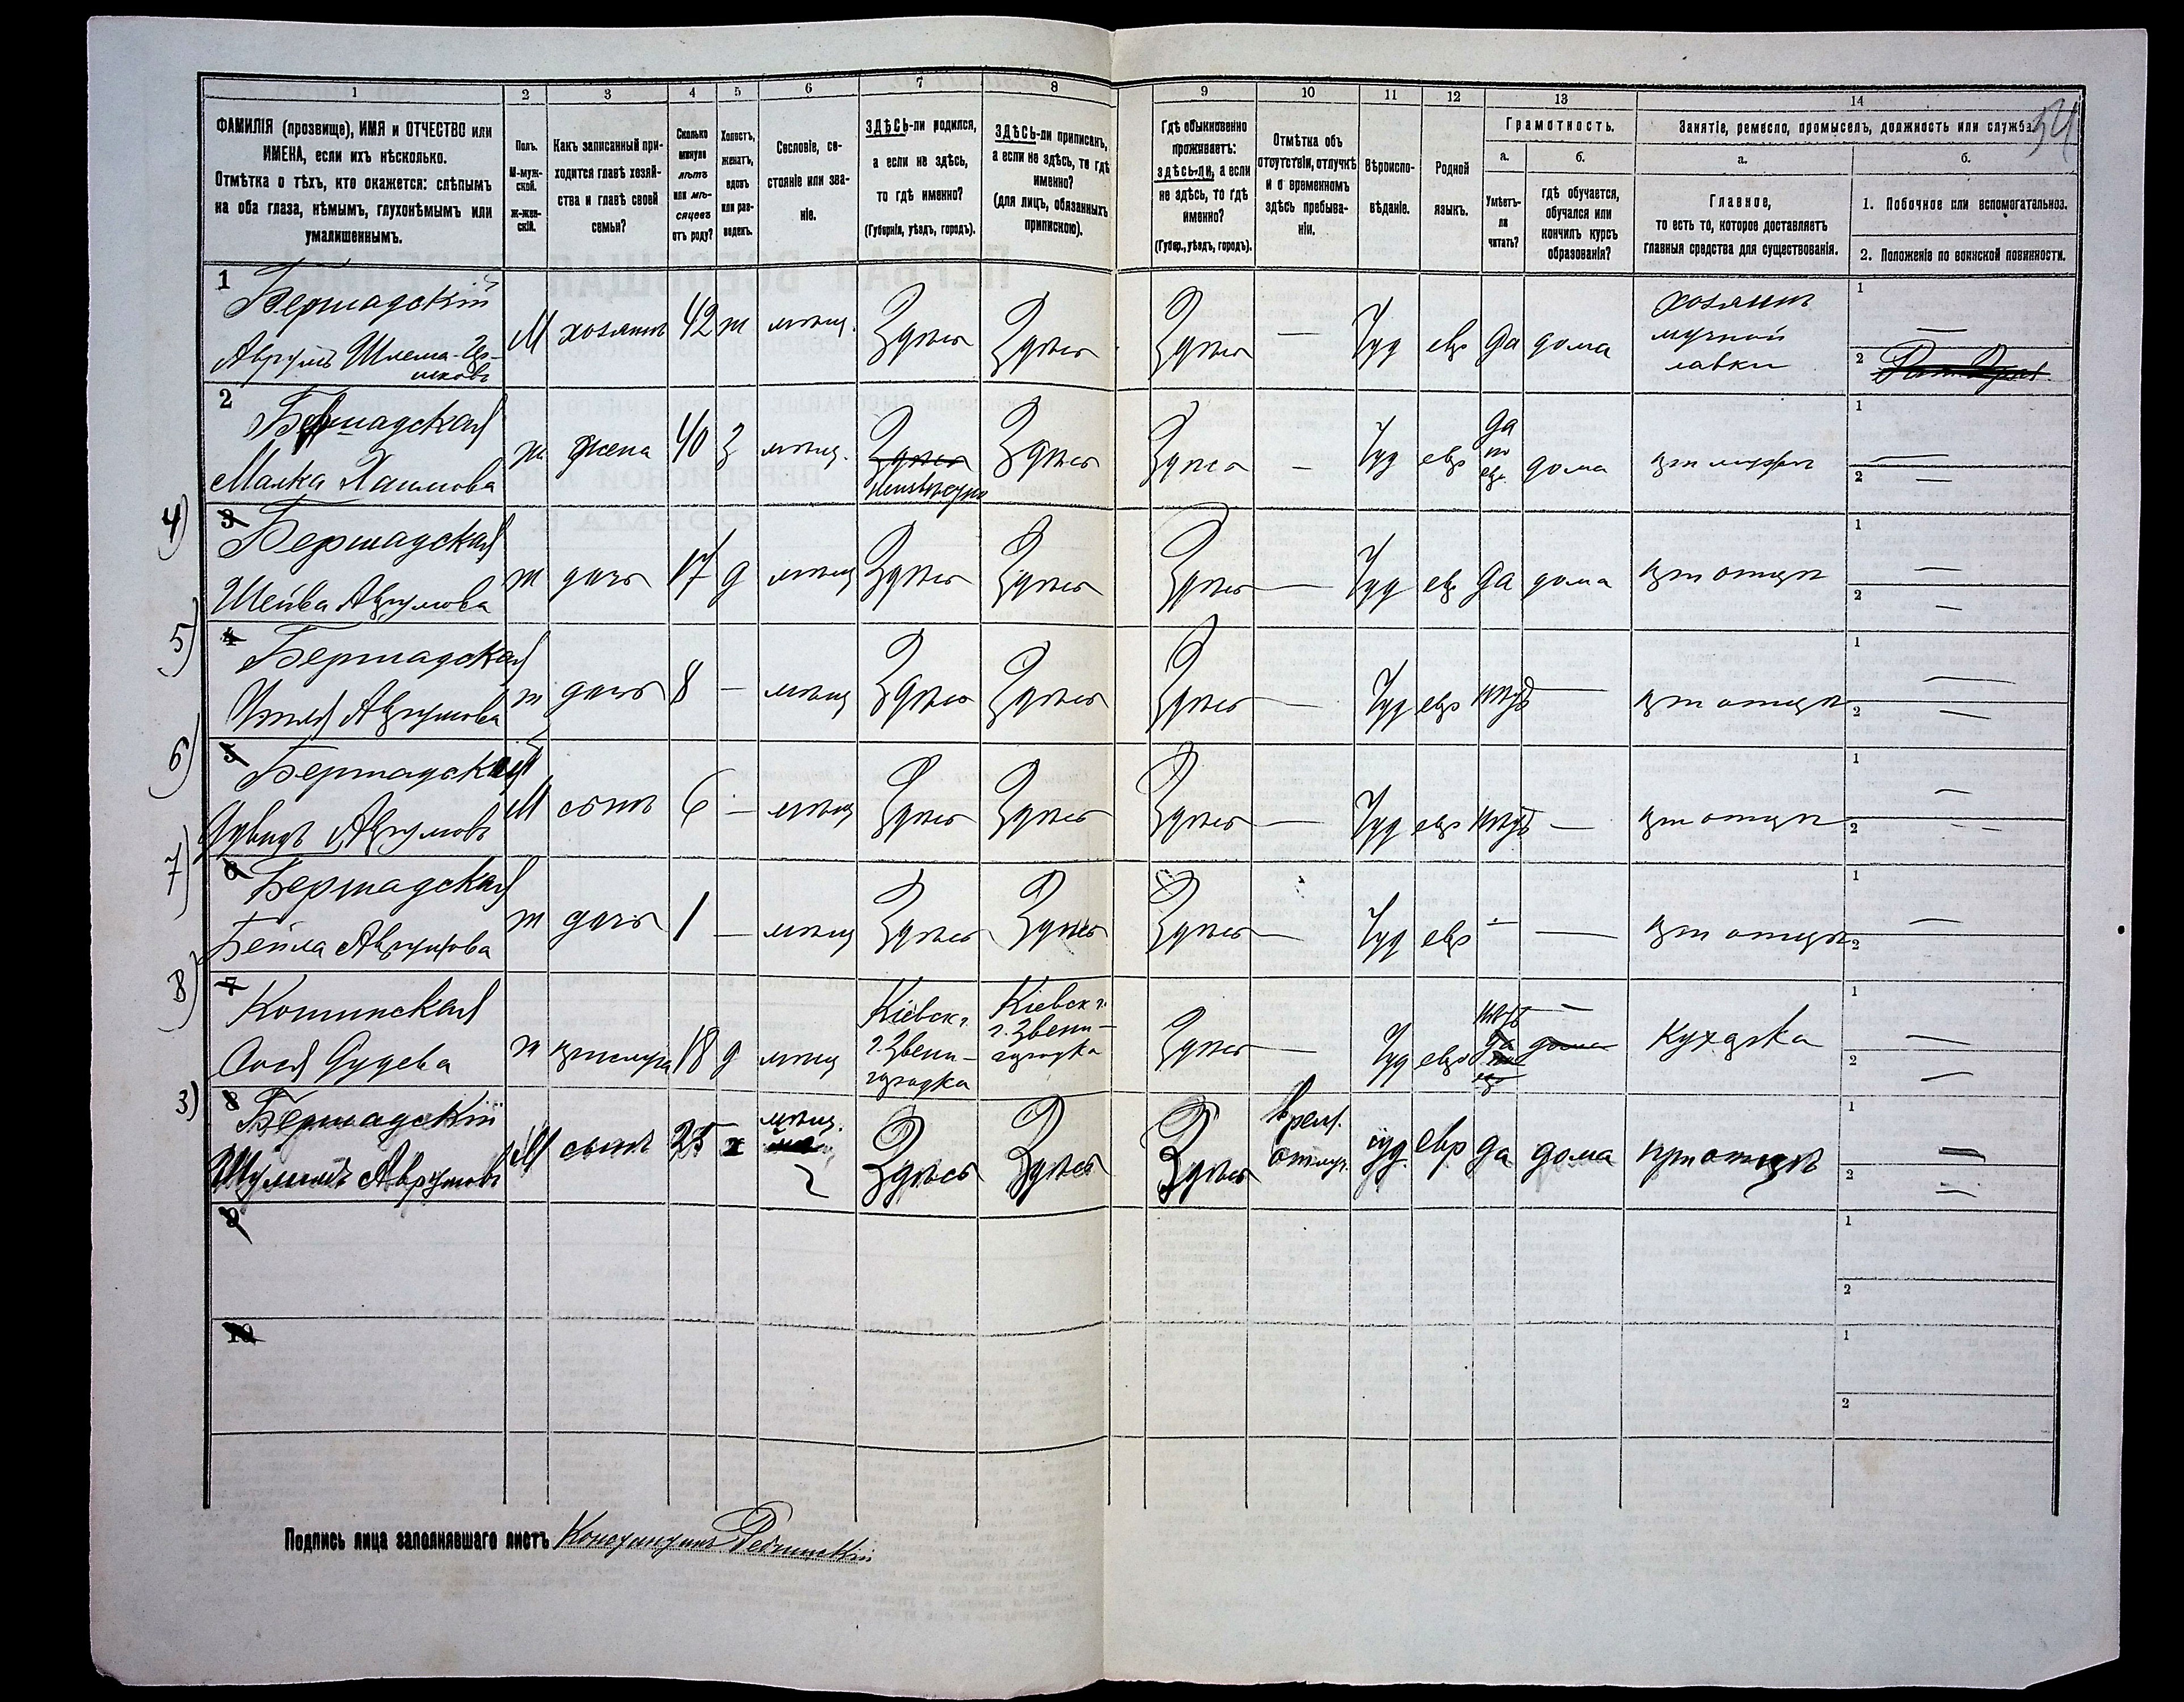 1 2 3 4 5 6 7 8 9 10 11 12 13 14
54
ФАМИЛІЯ (прозвище), ИМЯ и ОТЧЕСТВО или ИМЕНА, если ихъ нѣсколько.
Отмѣтка о тѣхъ, кто окажется: слѣпымъ на оба глаза, нѣмымъ, глухонѣмымъ или умалишеннымъ.
Полъ. М-мужской. Ж-женскій.
Какъ записанный приходится главѣ хозяйства и главѣ своей семьи?
Сколько минуло лѣтъ или мѣсяцевъ отъ роду?
Холостъ, женатъ, вдовъ или разведенъ.
Сословіе, состояніе или званіе.
ЗДѢСЬ-ли родился, а если не здѣсь, то гдѣ именно?
(Губернія, уѣздъ, городъ).
ЗДѢСЬ-ли приписанъ, а если не здѣсь, то гдѣ именно?
(для лицъ, обязанныхъ припискою).
Гдѣ обыкновенно проживаетъ: здѣсь-ли, а если не здѣсь, то гдѣ именно?
(Губер., уѣздъ, городъ).
Отмѣтка объ отсутствіи, отлучкѣ и о временномъ здѣсь пребываніи.
Вѣроисповѣданіе.
Родной языкъ.
Грамотность.
а. Умѣетъ-ли читать?
б. гдѣ обучается, обучался или кончилъ курсъ образованія?
Занятіе, ремесло, промыселъ, должность или служба.
а. Главное, то есть то, которое доставляетъ главныя средства для существованія.
б. 1. Побочное или вспомогательное.
2. Положеніе по воинской повинности.
1 Бершадскій Аврумъ Шлема- М хозяинъ 42 ж мѣщ. Здѣсь Здѣсь Здѣсь — Іуд евр да дома хозяинъ мучной лавки 1 — 2
2 Бершадская Малка Хаимова ж жена 40 з мѣщ. Здѣсь Неизвѣстно Здѣсь Здѣсь — Іуд евр да по евр дома при мужѣ 1 — 2 —
4) 3 Бершадская Шейва Аврумова ж дочь 17 д мѣщ Здѣсь Здѣсь Здѣсь — Іуд евр да дома при отцѣ 1 — 2 —
5) 4 Бершадская Аврумова ж дочь 8 — мѣщ Здѣсь Здѣсь Здѣсь — Іуд евр нѣтъ — при отцѣ 1 — 2 —
6) 5 Бершадскій Дувидъ Аврумовъ М сынъ 6 — мѣщ Здѣсь Здѣсь Здѣсь — Іуд евр нѣтъ — при отцѣ 1 — 2 —
7) 6 Бершадская Бейла Аврумова ж дочь 1 — мѣщ Здѣсь Здѣсь Здѣсь — Іуд евр — — при отцѣ 1 — 2
8) 7 Дудева ж прислуга 18 д мѣщ Кіевск г. г. Звенигородка Кіевск г. г. Звенигородка Здѣсь — Іуд евр нѣтъ — да дома Кухарка 1 — 2 —
3) 8 Бершадскій Шулимъ Аврумовъ М сынъ 25 х мѣщ. Здѣсь Здѣсь Здѣсь врем. отлуч. іуд. евр да дома при отцѣ 1 — 2 —
9 1 2
10 1 2
Подпись лица заполнявшаго листъ Константинъ